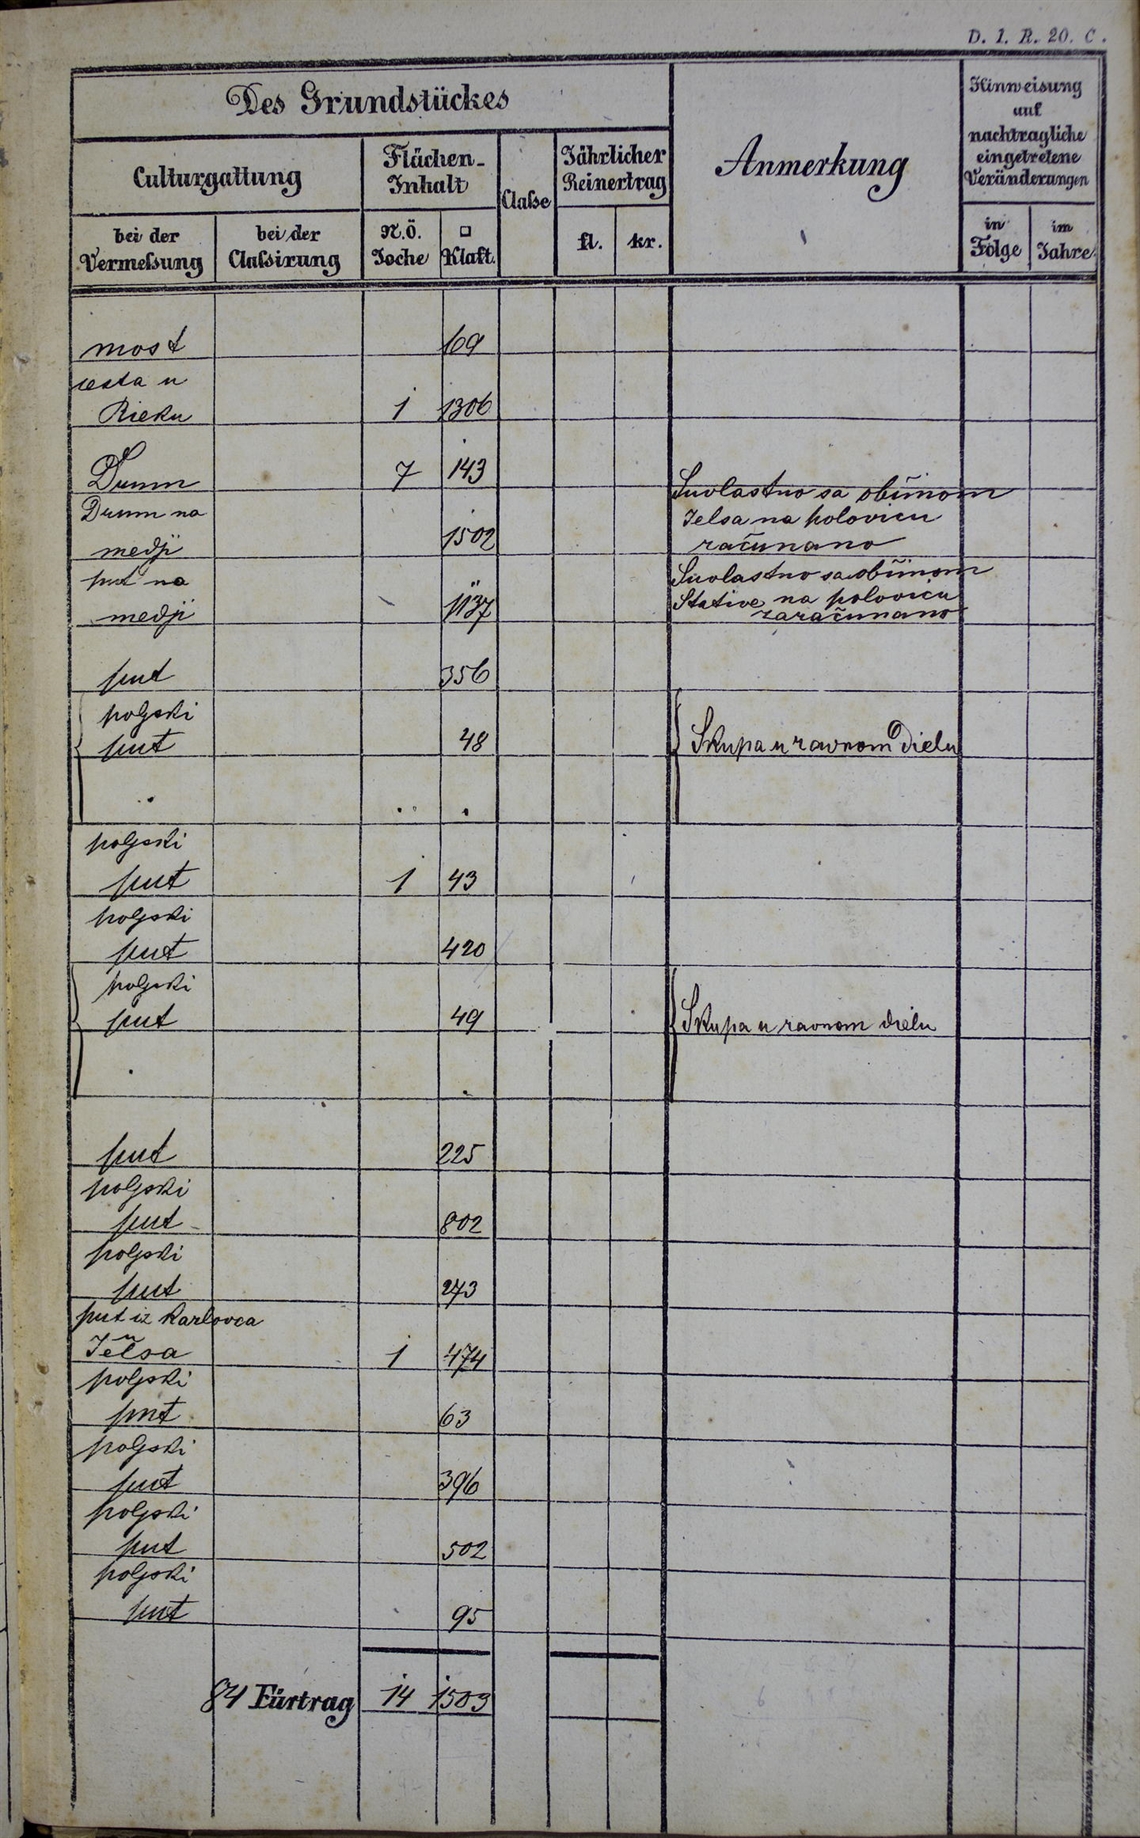 D. 1. R. 20. C.
Des Grundstückes
Anmerkung
Hinweisung
auf
nachtragliche
eingetretene
Veränderungen
Culturgattung
Flächen-
Inhalt
Classe
Jährlicher
Reinertrag
bei der
Vermeßung
bei der
Claßirung
N.Ö.
Joche
□
Klaft.
fl.
kr.
in
Folge
im
Jahre
most 169
cesta u
Rieku 1 1306
Drum 7 143
Drum na
medji 1502
Suvlastno sa obćinom
Jelsa na polovicu
računano
put na
medji 1137
Suvlastno sa obćinom
Stative na polovicu
zaračunano
put 356
poljski
put 48 Skupa u ravnom dielu
poljski
put 1 43
poljski
put 420
poljski
put 49 Skupa u ravnom dielu
put 225
poljski
put 802
poljski
put 273
put iz Karlovca
u
Jelsa 1 474
poljski
put 63
poljski
put 396
poljski
put 502
poljski
put 95
84 Fürtrag 14 1503